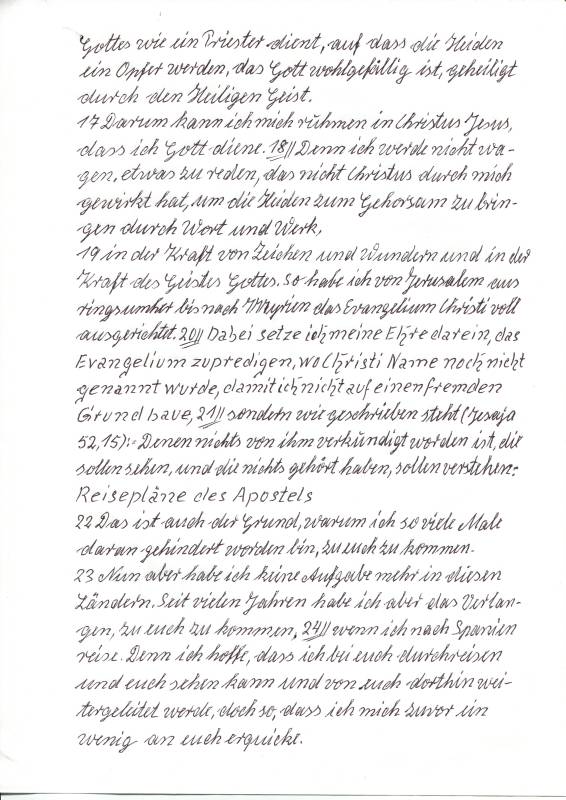 Gottes wie ein Priester dient, auf dass die Heiden
ein Opfer werden, das Gott wohlgefällig ist, geheiligt
durch den Heiligen Geist.
17 Darum kann ich mich rühmen in Christus Jesus,
dass ich Gott diene. 18// Denn ich werde nicht wa-
gen, etwas zu reden, das nicht Christus durch mich
gewirkt hat, um die Heiden zum Gehorsam zu brin-
gen durch Wort und Werk,
19 in der Kraft von Zeichen und Wundern und in der
Kraft des Geistes Gottes. So habe ich von Jerusalem aus
ringsumher bis nach Illyrien das Evangelium Christi voll
ausgerichtet. 20// Dabei setze ich meine Ehre darein, das
Evangelium zu predigen, wo Christi Name noch nicht
genannt wurde, damit ich nicht auf einen fremden
Grund baue, 21// sondern wie geschrieben steht (Jesaja
52,15):- Denen nichts von ihm verkündigt worden ist, die
sollen sehen, und die nichts gehört haben, sollen verstehen:-
Reisepläne des Apostels
22 Das ist auch der Grund, warum ich so viele Male
daran gehindert worden bin, zu euch zu kommen.
23 Nun aber habe ich keine Aufgabe mehr in diesen
Ländern. Seit vielen Jahren habe ich aber das Verlan-
gen, zu euch zu kommen, 24// wenn ich nach Spanien
reise. Denn ich hoffe, dass ich bei euch durchreisen
und euch sehen kann und von euch dorthin wei-
tergeleitet werde, doch so, dass ich mich zuvor ein
wenig an euch erquicke.